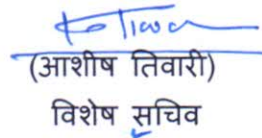 (आशीष तिवारी)
विशेष सचिव